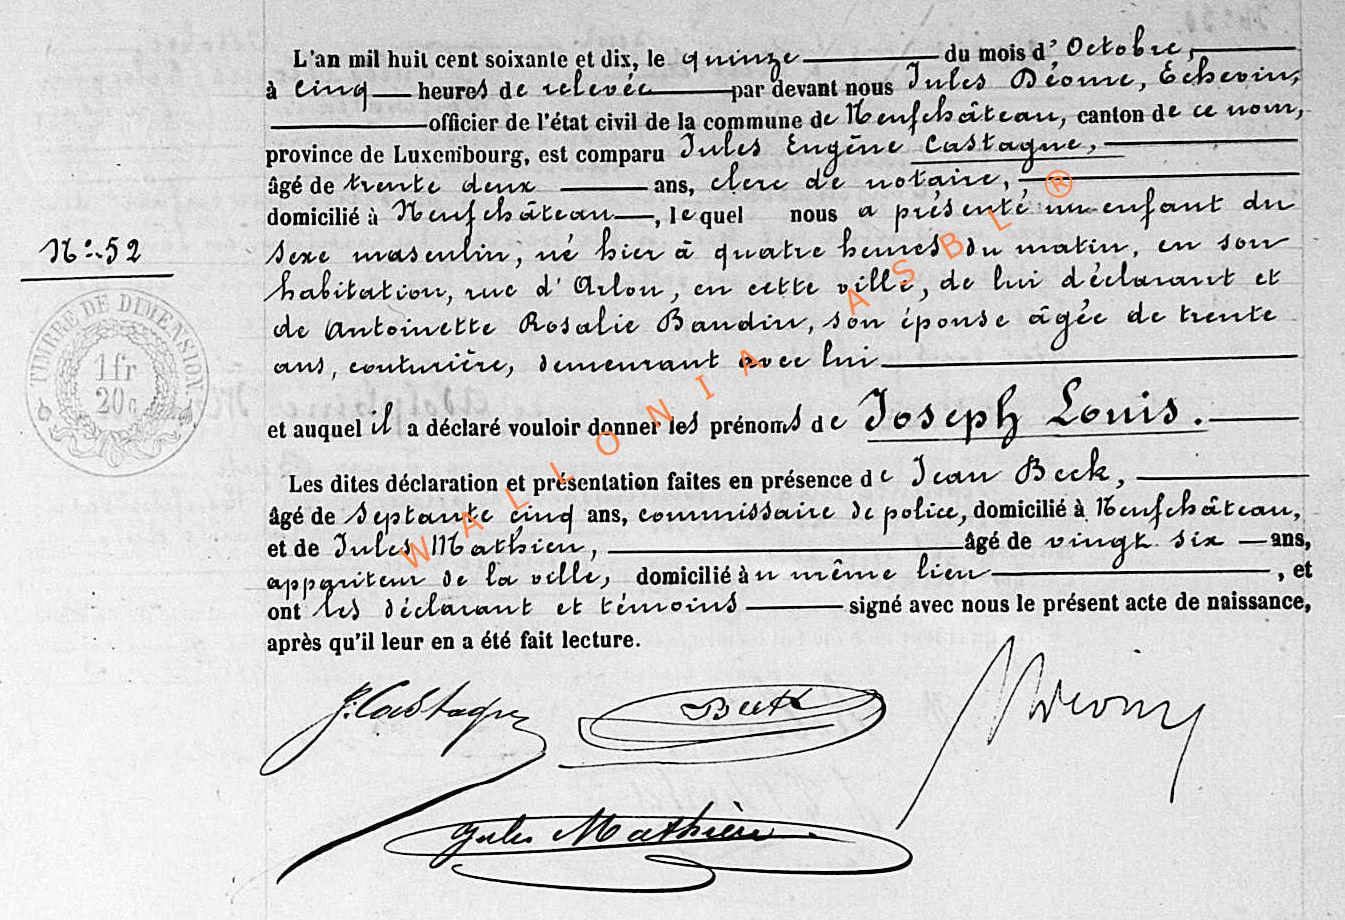 L'an mil huit cent soixante et dix, le quinze du mois d'Octobre,
à cinq heures de relevée par devant nous Jules Déome, Echevin,
officier de l'état civil de la commune de Neufchâteau, canton de ce nom,
province de Luxembourg, est comparu Jules Eugène Castagne,
âgé de trente deux ans, clerc de notaire,
domicilié à Neufchâteau, lequel nous a présenté un enfant du
N° 52
sexe masculin, né hier à quatre heures du matin, en son
habitation, rue d'Arlon, en cette ville, de lui déclarant et
de Antoinette Rosalie Baudin, son épouse âgée de trente
ans, couturière, demeurant avec lui
TIMBRE DE DIMENSION.
1 fr
20 c
et auquel il a déclaré vouloir donner les prénoms de Joseph Louis.
Les dites déclaration et présentation faites en présence de Jean Beck,
âgé de septante cinq ans, commissaire de police, domicilié à Neufchâteau,
et de Jules Mathieu, âgé de vingt six ans,
appariteur de la ville, domicilié au même lieu, et
ont les déclarant et témoins signé avec nous le présent acte de naissance,
après qu'il leur en a été fait lecture.
J. Castagne Beck Déome
Jules Mathieu
WALLONIA ASBL ®